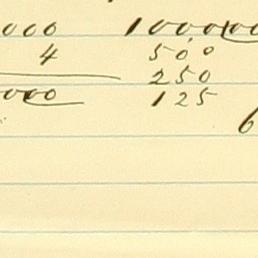 000 1000000
4 500
250
000 125
6